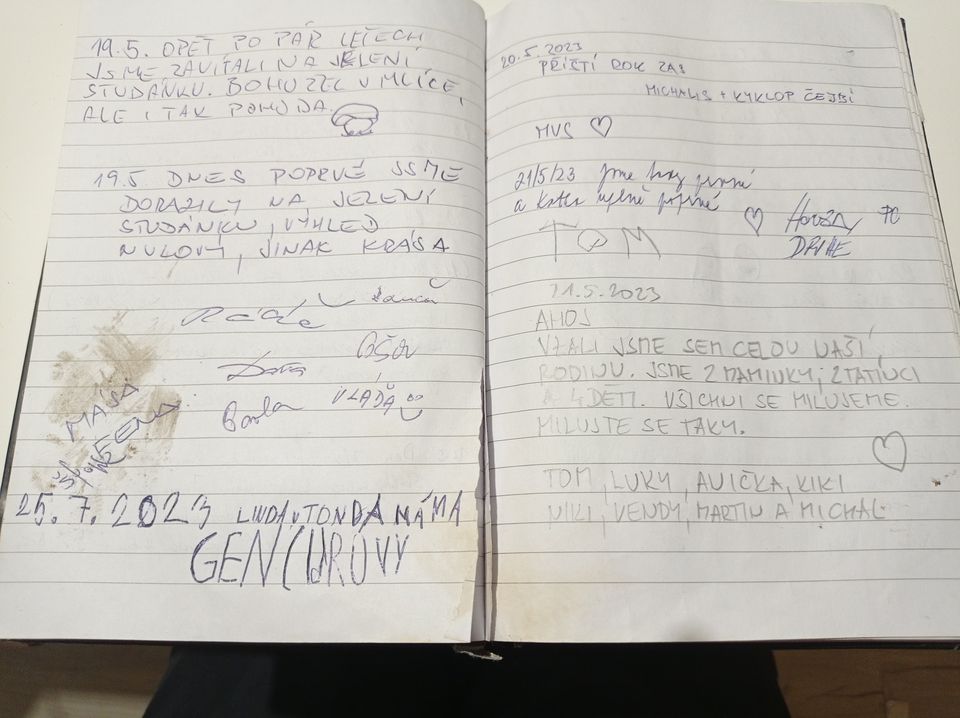 19.5. OPĚT PO PÁR LETECH
JSME ZAVÍTALI NA JELENÍ
STUDÁNKU. BOHUŽEL V MLÍCE,
ALE I TAK POHODA.
19.5 DNES POPRVÉ JSME
DORAZILY NA JELENÍ
STUDÁNKU, VÝHLED
NULOVÝ, JINAK KRÁSA
VLÁĎA
MÁŠA
25.7.2023 LINDA TONDA MÁMA
GENČUROVY
20.5.2023
PŘÍŠTÍ ROK ZAS
MICHALIS + KYKLOP ČEJŠÍ
MVS
21/5/23 jsme tu první
a úplně poprvé
TOM
21.5.2023
AHOJ
VZALI JSME SEM CELOU NAŠÍ
RODINU. JSME 2 MAMINKY, 2 TATÍNCI
A 4 DĚTI. VŠICHNI SE MILUJEME.
MILUJTE SE TAKY.
TOM, LUKY, ANIČKA, KIKI
NIKI, VENDY, MARTIN A MICHAL